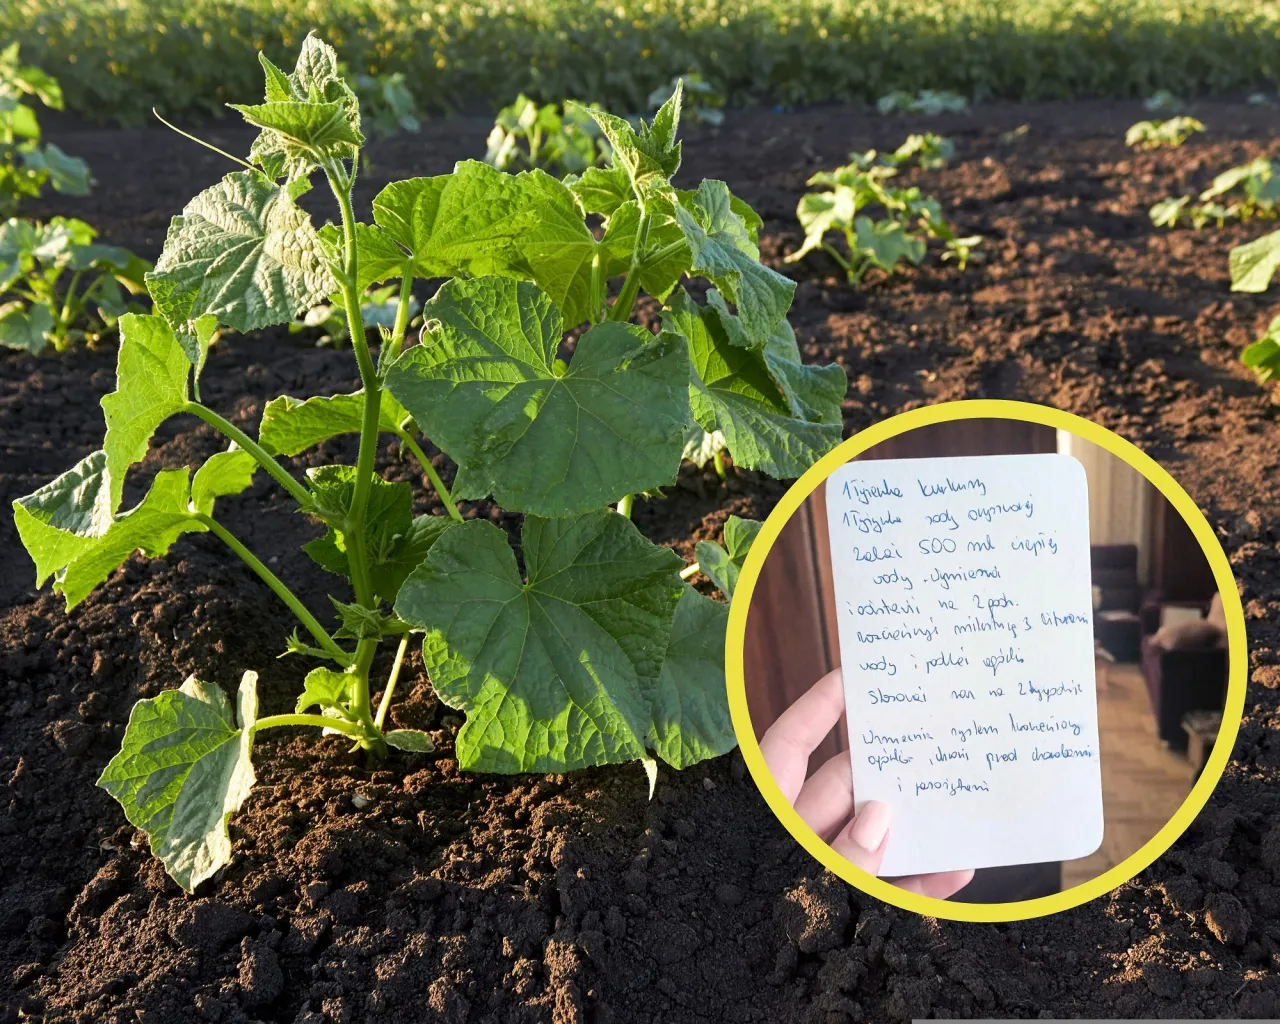 1 łyżeczka kurkumy
1 łyżeczka sody oczyszczonej
Zalać 500 ml ciepłej
wody. Wymieszać
i odstawić na 2 godz.
rozcieńczyć miksturę 3 litrami
wody i podlać ogórki
Stosować raz na 2 tygodnie
Wzmacnia system korzeniowy
ogórków, chroni przed chorobami
i pasożytami